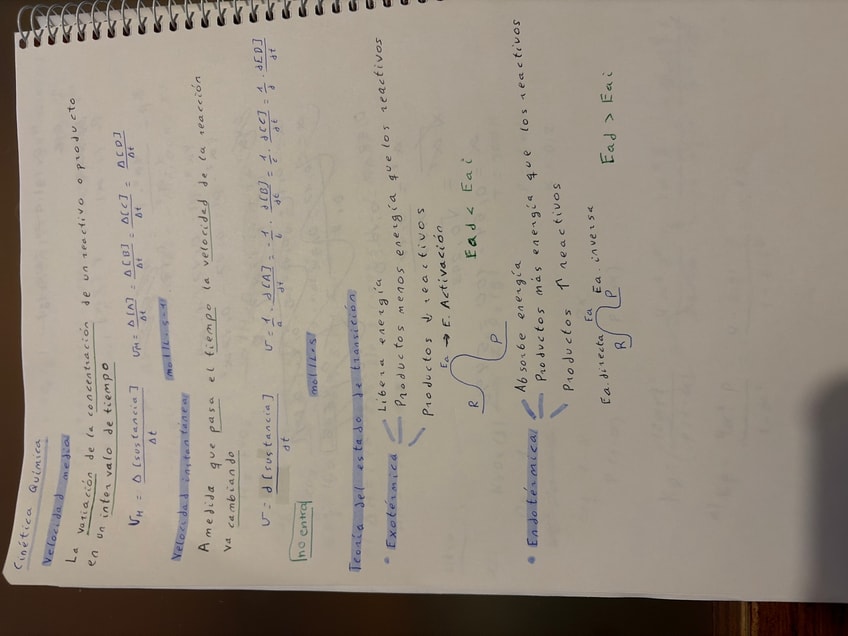 Cinética Química
Velocidad media
La variación de la concentración de un reactivo o producto
en un intervalo de tiempo
VM = Δ[sustancia]/Δt VM = Δ[A]/Δt = Δ[B]/Δt = Δ[C]/Δt = Δ[D]/Δt
mol/L·s-1
Velocidad instantánea
A medida que pasa el tiempo la velocidad de la reacción
va cambiando
v = d[sustancia]/dt v = 1/a · d[A]/dt = -1/b · d[B]/dt = 1/c · d[C]/dt = 1/d · d[D]/dt
no entra mol/L·s
Teoría del estado de transición
• Exotérmica
Libera energía
Productos menos energía que los reactivos
Productos ↓ reactivos
Ea → E. Activación
R P
Ead < Eai
• Endotérmica
Absorbe energía
Productos más energía que los reactivos
Productos ↑ reactivos
Ea. directa Ea Ea. inversa
R P
Ead > Eai